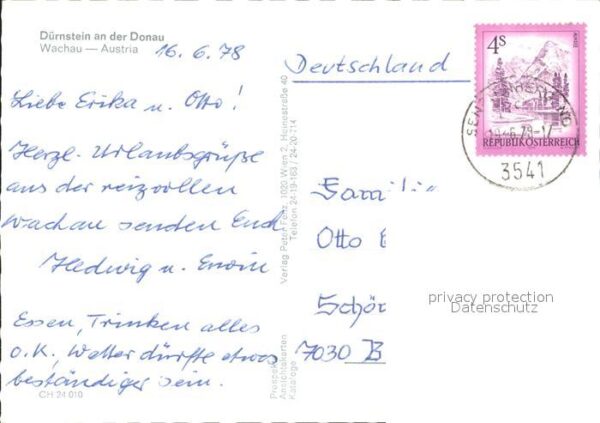 Dürnstein an der Donau
Wachau — Austria
16. 6. 78
Liebe Erika u. Otto!
Herzl. Urlaubsgrüße
aus der reizvollen
Wachau senden Euch
Hedwig u. Erwin
Essen, Trinken alles
o.K., Wetter dürfte etwas
beständiger sein.
CH 24 010
Verlag Peter 1020 Wien 2, Heinestraße 40
Telefon: 24-19-163 / 24-20-714
Ansichtskarten
Kataloge
Deutschland
4S
REPUBLIK ÖSTERREICH
3541
Familie
Otto
Schön
7030 B
privacy protection
Datenschutz